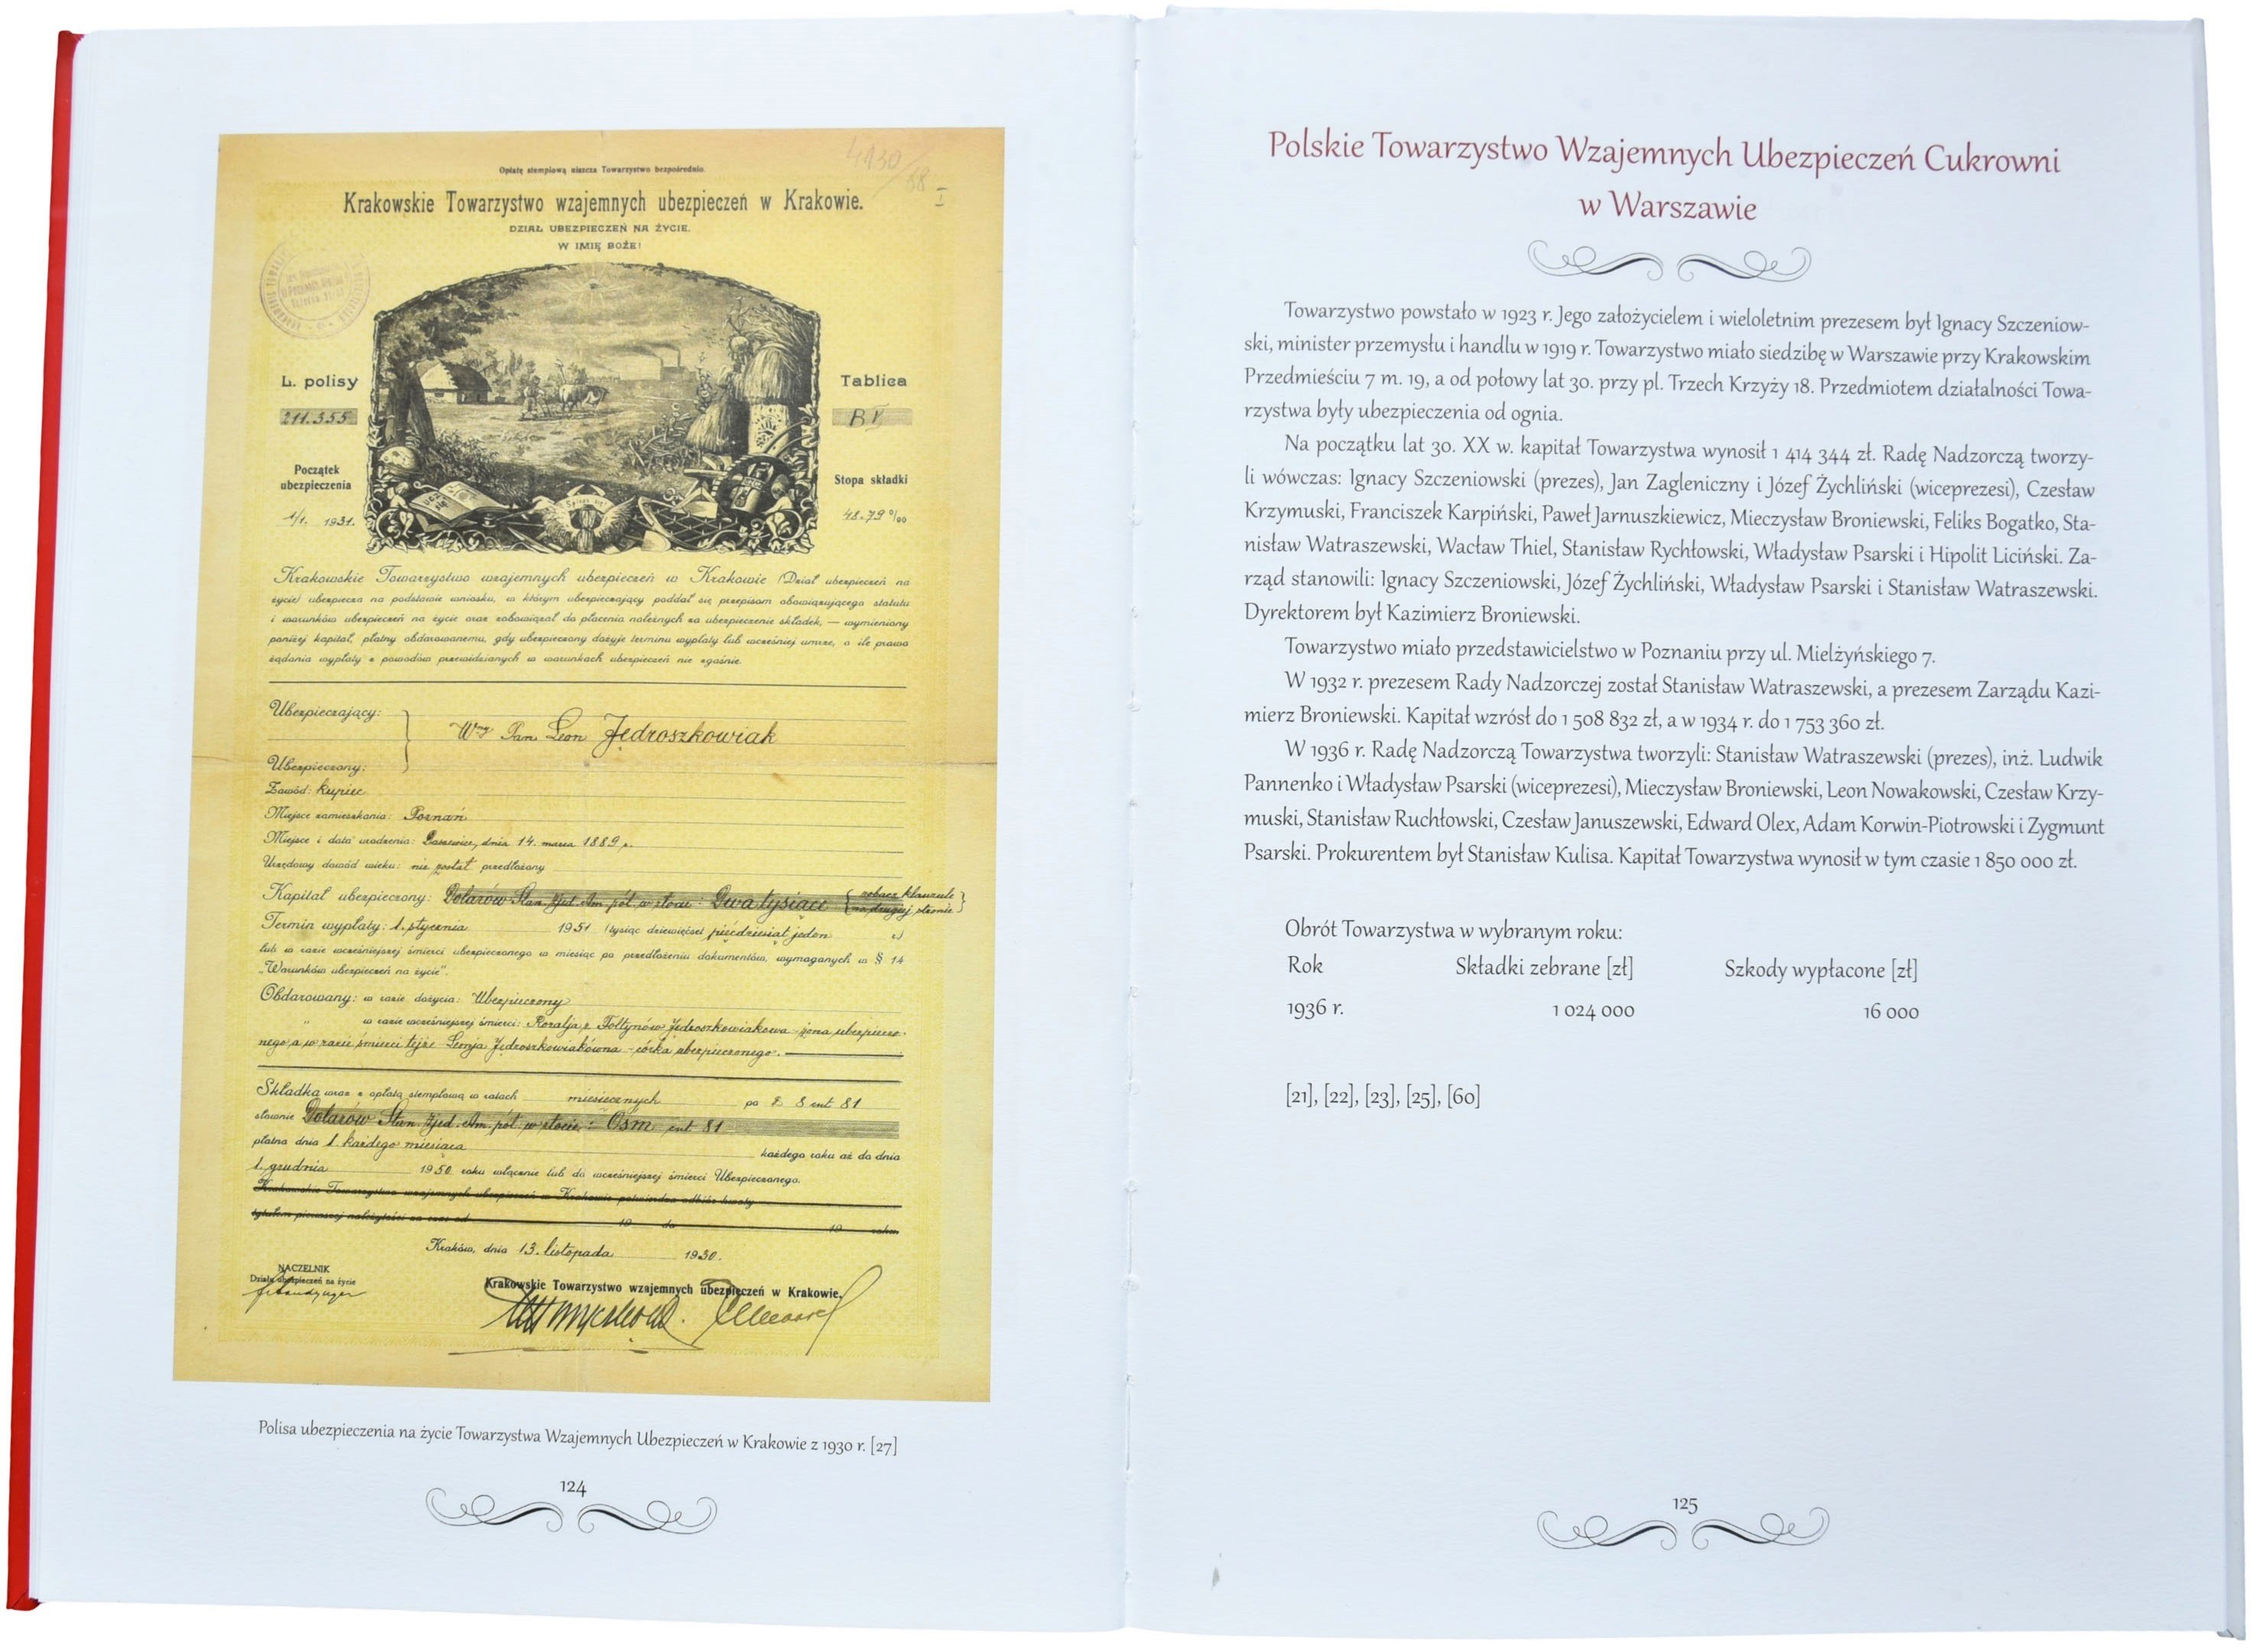 4130/88 I
Opłatę stemplową uiszcza Towarzystwo bezpośrednio.
Krakowskie Towarzystwo wzajemnych ubezpieczeń w Krakowie.
DZIAŁ UBEZPIECZEŃ NA ŻYCIE.
W IMIĘ BOŻE!
L. polisy
211.355
Tablica
B V
Początek
ubezpieczenia
1/1. 1931.
Stopa składki
48.79 ‰
Krakowskie Towarzystwo wzajemnych ubezpieczeń w Krakowie (Dział ubezpieczeń na
życie) ubezpiecza na podstawie wniosku, w którym ubezpieczający poddał się przepisom obowiązującego statutu
i warunków ubezpieczeń na życie oraz zobowiązał do płacenia należnych za ubezpieczenie składek, — wymieniony
poniżej kapitał, płatny obdarowanemu, gdy ubezpieczony dożyje terminu wypłaty lub wcześniej umrze, o ile prawo
żądania wypłaty z powodów przewidzianych w warunkach ubezpieczeń nie zgaśnie.
Ubezpieczający:
Wny Pan Leon Jędroszkowiak
Ubezpieczony:
Zawód: kupiec
Miejsce zamieszkania: Poznań
Miejsce i data urodzenia: dnia 14. marca 1889 r.
Urzędowy dowód wieku: nie został przedłożony
Kapitał ubezpieczony: Dolarów Stan. Zjed. Am. półn. w złocie: Dwa tysiące {zobacz klauzulę
na drugiej stronie}
Termin wypłaty: 1. stycznia 1951 (tysiąc dziewięćset pięćdziesiąt jeden r.)
lub w razie wcześniejszej śmierci ubezpieczonego w miesiąc po przedłożeniu dokumentów, wymaganych w § 14
„Warunków ubezpieczeń na życie".
Obdarowany: w razie dożycia: Ubezpieczony
" w razie wcześniejszej śmierci: Rozalja z Foltynów Jędroszkowiakowa - żona ubezpieczo-
nego a w razie śmierci tejże - Jędroszkowiakówna - córka ubezpieczonego.
Składka wraz z opłatą stemplową w ratach miesięcznych po 8 cnt 81
słownie Dolarów Stan. Zjed. Am. półn. w złocie: Ośm cnt 81
płatna dnia 1. każdego miesiąca każdego roku aż do dnia
1. grudnia 1950 roku włącznie lub do wcześniejszej śmierci Ubezpieczonego.
Krakowskie Towarzystwo wzajemnych ubezpieczeń w Krakowie potwierdza odbiór kwoty
tytułem pierwszej należytości za czas od 19 do 19 roku.
Kraków, dnia 13. listopada 1930.
NACZELNIK
Działu ubezpieczeń na życie
Krakowskie Towarzystwo wzajemnych ubezpieczeń w Krakowie.
Polisa ubezpieczenia na życie Towarzystwa Wzajemnych Ubezpieczeń w Krakowie z 1930 r. [27]
124
Polskie Towarzystwo Wzajemnych Ubezpieczeń Cukrowni
w Warszawie
Towarzystwo powstało w 1923 r. Jego założycielem i wieloletnim prezesem był Ignacy Szczeniow-
ski, minister przemysłu i handlu w 1919 r. Towarzystwo miało siedzibę w Warszawie przy Krakowskim
Przedmieściu 7 m. 19, a od połowy lat 30. przy pl. Trzech Krzyży 18. Przedmiotem działalności Towa-
rzystwa były ubezpieczenia od ognia.
Na początku lat 30. XX w. kapitał Towarzystwa wynosił 1 414 344 zł. Radę Nadzorczą tworzy-
li wówczas: Ignacy Szczeniowski (prezes), Jan Zagleniczny i Józef Żychliński (wiceprezesi), Czesław
Krzymuski, Franciszek Karpiński, Paweł Jarnuszkiewicz, Mieczysław Broniewski, Feliks Bogatko, Sta-
nisław Watraszewski, Wacław Thiel, Stanisław Rychłowski, Władysław Psarski i Hipolit Liciński. Za-
rząd stanowili: Ignacy Szczeniowski, Józef Żychliński, Władysław Psarski i Stanisław Watraszewski.
Dyrektorem był Kazimierz Broniewski.
Towarzystwo miało przedstawicielstwo w Poznaniu przy ul. Mielżyńskiego 7.
W 1932 r. prezesem Rady Nadzorczej został Stanisław Watraszewski, a prezesem Zarządu Kazi-
mierz Broniewski. Kapitał wzrósł do 1 508 832 zł, a w 1934 r. do 1 753 360 zł.
W 1936 r. Radę Nadzorczą Towarzystwa tworzyli: Stanisław Watraszewski (prezes), inż. Ludwik
Pannenko i Władysław Psarski (wiceprezesi), Mieczysław Broniewski, Leon Nowakowski, Czesław Krzy-
muski, Stanisław Ruchłowski, Czesław Januszewski, Edward Olex, Adam Korwin-Piotrowski i Zygmunt
Psarski. Prokurentem był Stanisław Kulisa. Kapitał Towarzystwa wynosił w tym czasie 1 850 000 zł.
Obrót Towarzystwa w wybranym roku:
Rok Składki zebrane [zł] Szkody wypłacone [zł]
1936 r. 1 024 000 16 000
[21], [22], [23], [25], [60]
125